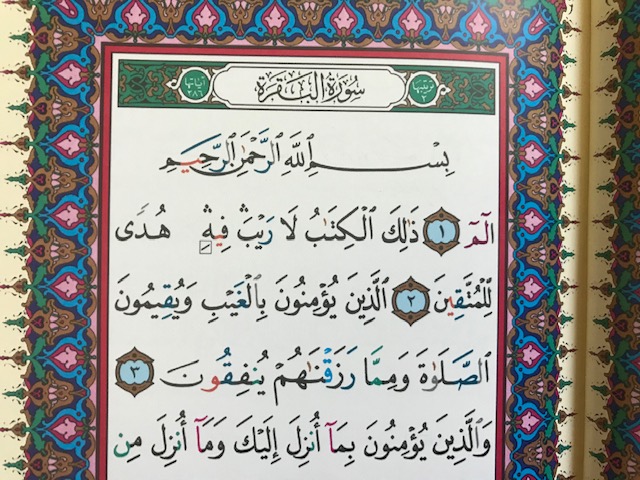 ترتيبها ٢ سُورَةُ الْبَقَرَةِ آياتها ٢٨٦
بِسْمِ ٱللَّهِ ٱلرَّحْمَٰنِ ٱلرَّحِيمِ
الٓمٓ ١ ذَٰلِكَ ٱلْكِتَٰبُ لَا رَيْبَۛ فِيهِۛ هُدًى
لِّلْمُتَّقِينَ ٢ ٱلَّذِينَ يُؤْمِنُونَ بِٱلْغَيْبِ وَيُقِيمُونَ
ٱلصَّلَوٰةَ وَمِمَّا رَزَقْنَٰهُمْ يُنفِقُونَ ٣
وَٱلَّذِينَ يُؤْمِنُونَ بِمَآ أُنزِلَ إِلَيْكَ وَمَآ أُنزِلَ مِن